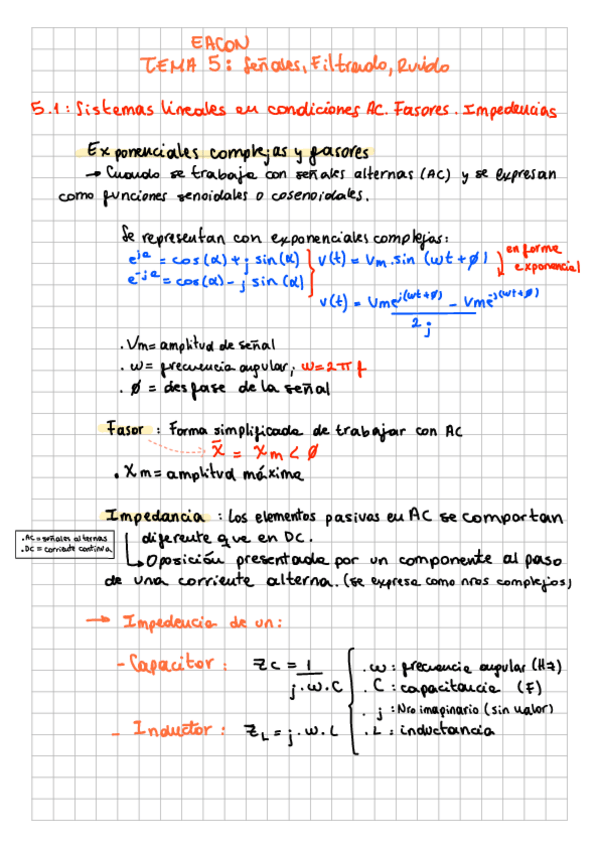 EACON
TEMA 5: Señales, Filtrado, Ruido
5.1: Sistemas lineales en condiciones AC. Fasores. Impedencias
Exponenciales complejas y fasores
→ Cuando se trabaja con señales alternas (AC) y se expresan
como funciones senoidales o cosenoidales.
Se representan con exponenciales complejas:
e^jα = cos(α) + j sin(α) } v(t) = Vm. sin (wt + ø) en forma
e^-jα = cos(α) - j sin(α) exponencial
v(t) = Vme^j(wt+ø) - Vme^j(wt+ø)
2j
. Vm = amplitud de señal
. w = frecuencia angular; w = 2πf
. ø = desfase de la señal
Fasor : Forma simplificada de trabajar con AC
x̄ = Xm < ø
. Xm = amplitud máxima
Impedancia : Los elementos pasivas en AC se comportan
diferente que en DC.
.AC = señales alternas
.DC = corriente continua
↳ Oposición presentada por un componente al paso
de una corriente alterna. (se expresa como nros complejos)
→ Impedencia de un:
- Capacitor : Zc = 1 / j.w.C
. w : frecuencia angular (Hz)
. C : capacitancia (F)
. j : Nro imaginario (sin valor)
- Inductor : ZL = j.w.L
. L : inductancia